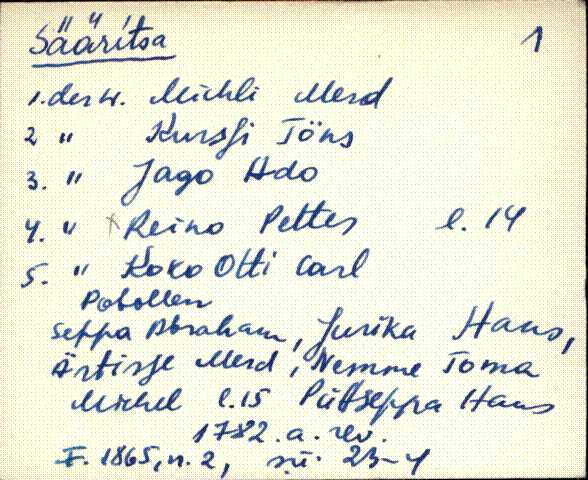 Sääritsa 1
1. der W. Michli Merd
2 " Kurssi Töns
3. " Jago Ado
4. " x Reino Pettes l. 14
5. " Koko Otti Carl
Pobollen
Seppa Abraham, Jurika Hans,
Ärtisje Merd, Nemme Toma
Michel l.15 Püttseppa Hans
1782. a. rev.
F. 1865, n. 2, sü. 23-4